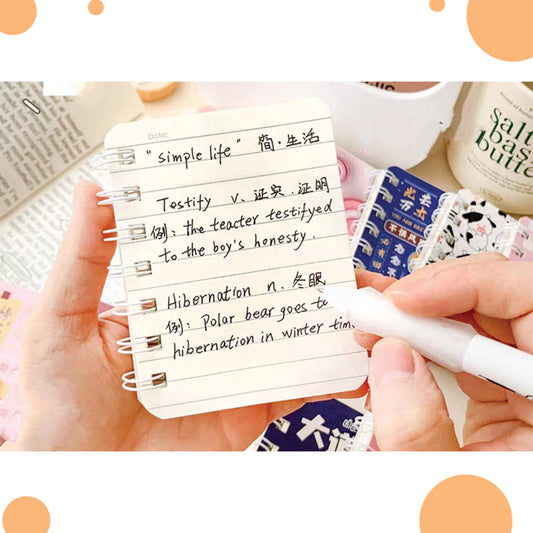 Date:
"simple life" 简·生活
Testify v. 证实.证明
例: the teacter testifyed
to the boy's honesty.
Hibernation n. 冬眠
例: Polar bear goes to
hibernation in winter tim
salt
bas
butt
YOU ARE BES
不惧风
大道